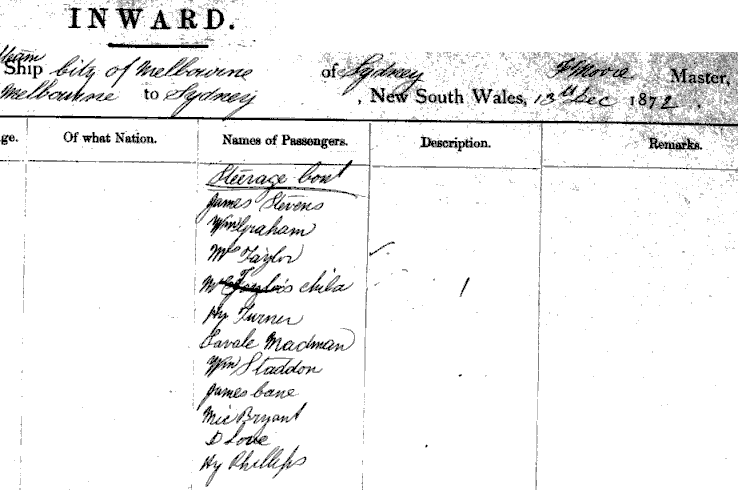 INWARD.
Steam
Ship City of Melbourne of Sydney F Moore Master,
Melbourne to Sydney , New South Wales, 13th Dec 1872 .
ge. Of what Nation. Names of Passengers. Description. Remarks.
Steerage Cont
James Stevens
Wm Graham
Mrs Taylor
child
Hy Turner
Madman
Wm Staddon
James Cane
Mic Bryant
D Love
Hy Phillips